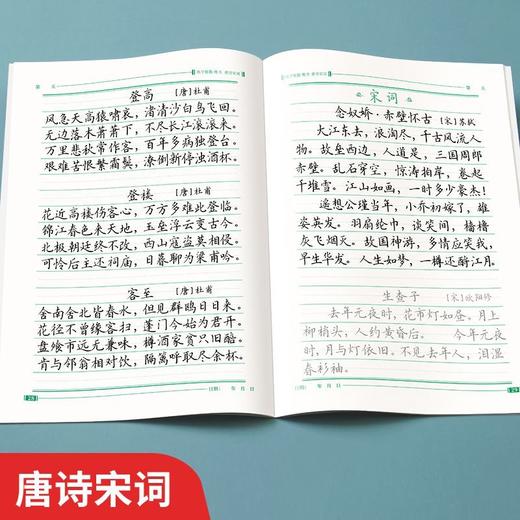 第 页
登高 【唐】杜甫
风急天高猿啸哀，渚清沙白鸟飞回。
无边落木萧萧下，不尽长江滚滚来。
万里悲秋常作客，百年多病独登台。
艰难苦恨繁霜鬓，潦倒新停浊酒杯。
登楼 【唐】杜甫
花近高楼伤客心，万方多难此登临。
锦江春色来天地，玉垒浮云变古今。
北极朝廷终不改，西山寇盗莫相侵。
可怜后主还祠庙，日暮聊为梁甫吟。
客至 【唐】杜甫
舍南舍北皆春水，但见群鸥日日来。
花径不曾缘客扫，蓬门今始为君开。
盘飧市远无兼味，樽酒家贫只旧醅。
肯与邻翁相对饮，隔篱呼取尽余杯。
日期： 年 月 日
28
第 页
宋词
念奴娇·赤壁怀古 【宋】苏轼
大江东去，浪淘尽，千古风流人
物。故垒西边，人道是，三国周郎
赤壁。乱石穿空，惊涛拍岸，卷起
千堆雪。江山如画，一时多少豪杰！
遥想公瑾当年，小乔初嫁了，雄
姿英发。羽扇纶巾，谈笑间，樯橹
灰飞烟灭。故国神游，多情应笑我，
早生华发。人生如梦，一樽还酹江月。
生查子 【宋】欧阳修
去年元夜时，花市灯如昼。月上
柳梢头，人约黄昏后。 今年元夜
时，月与灯依旧。不见去年人，泪湿
春衫袖。
日期： 年 月 日
29
唐诗宋词